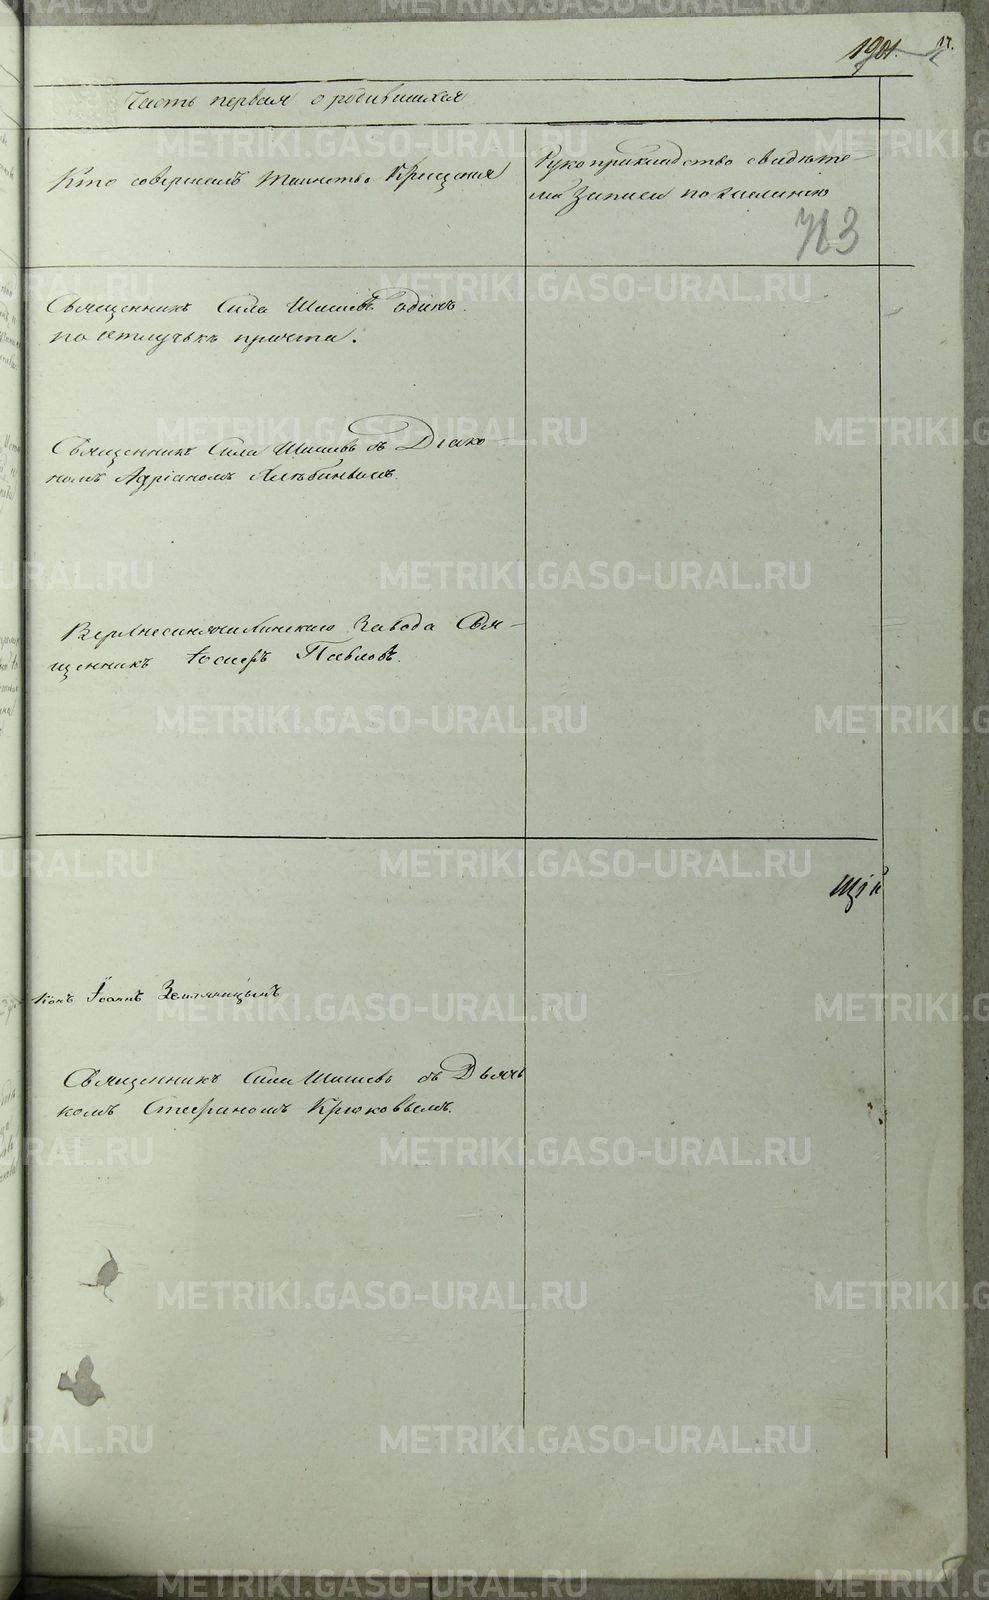 191. 17.
Часть первая о родившихся
Кто совершалъ таинство Крещения
Рукоприкладство свидѣте-
лей записи по желанию
713
Священникъ Сила Шишевъ одинъ.
по отлучькѣ причта.
Священникъ Сила Шишевъ съ Діако-
номъ Адріаномъ Хлѣбинымъ.
Верхнесинячихинскаго Завода Свя-
щенникъ Іосифъ Павловъ.
щій
конъ Іоаннъ Земляницынъ
Священникъ Сила Шишевъ съ Дьячь
комъ Стефаномъ Крюковымъ.
METRIKI.GASO-URAL.RU